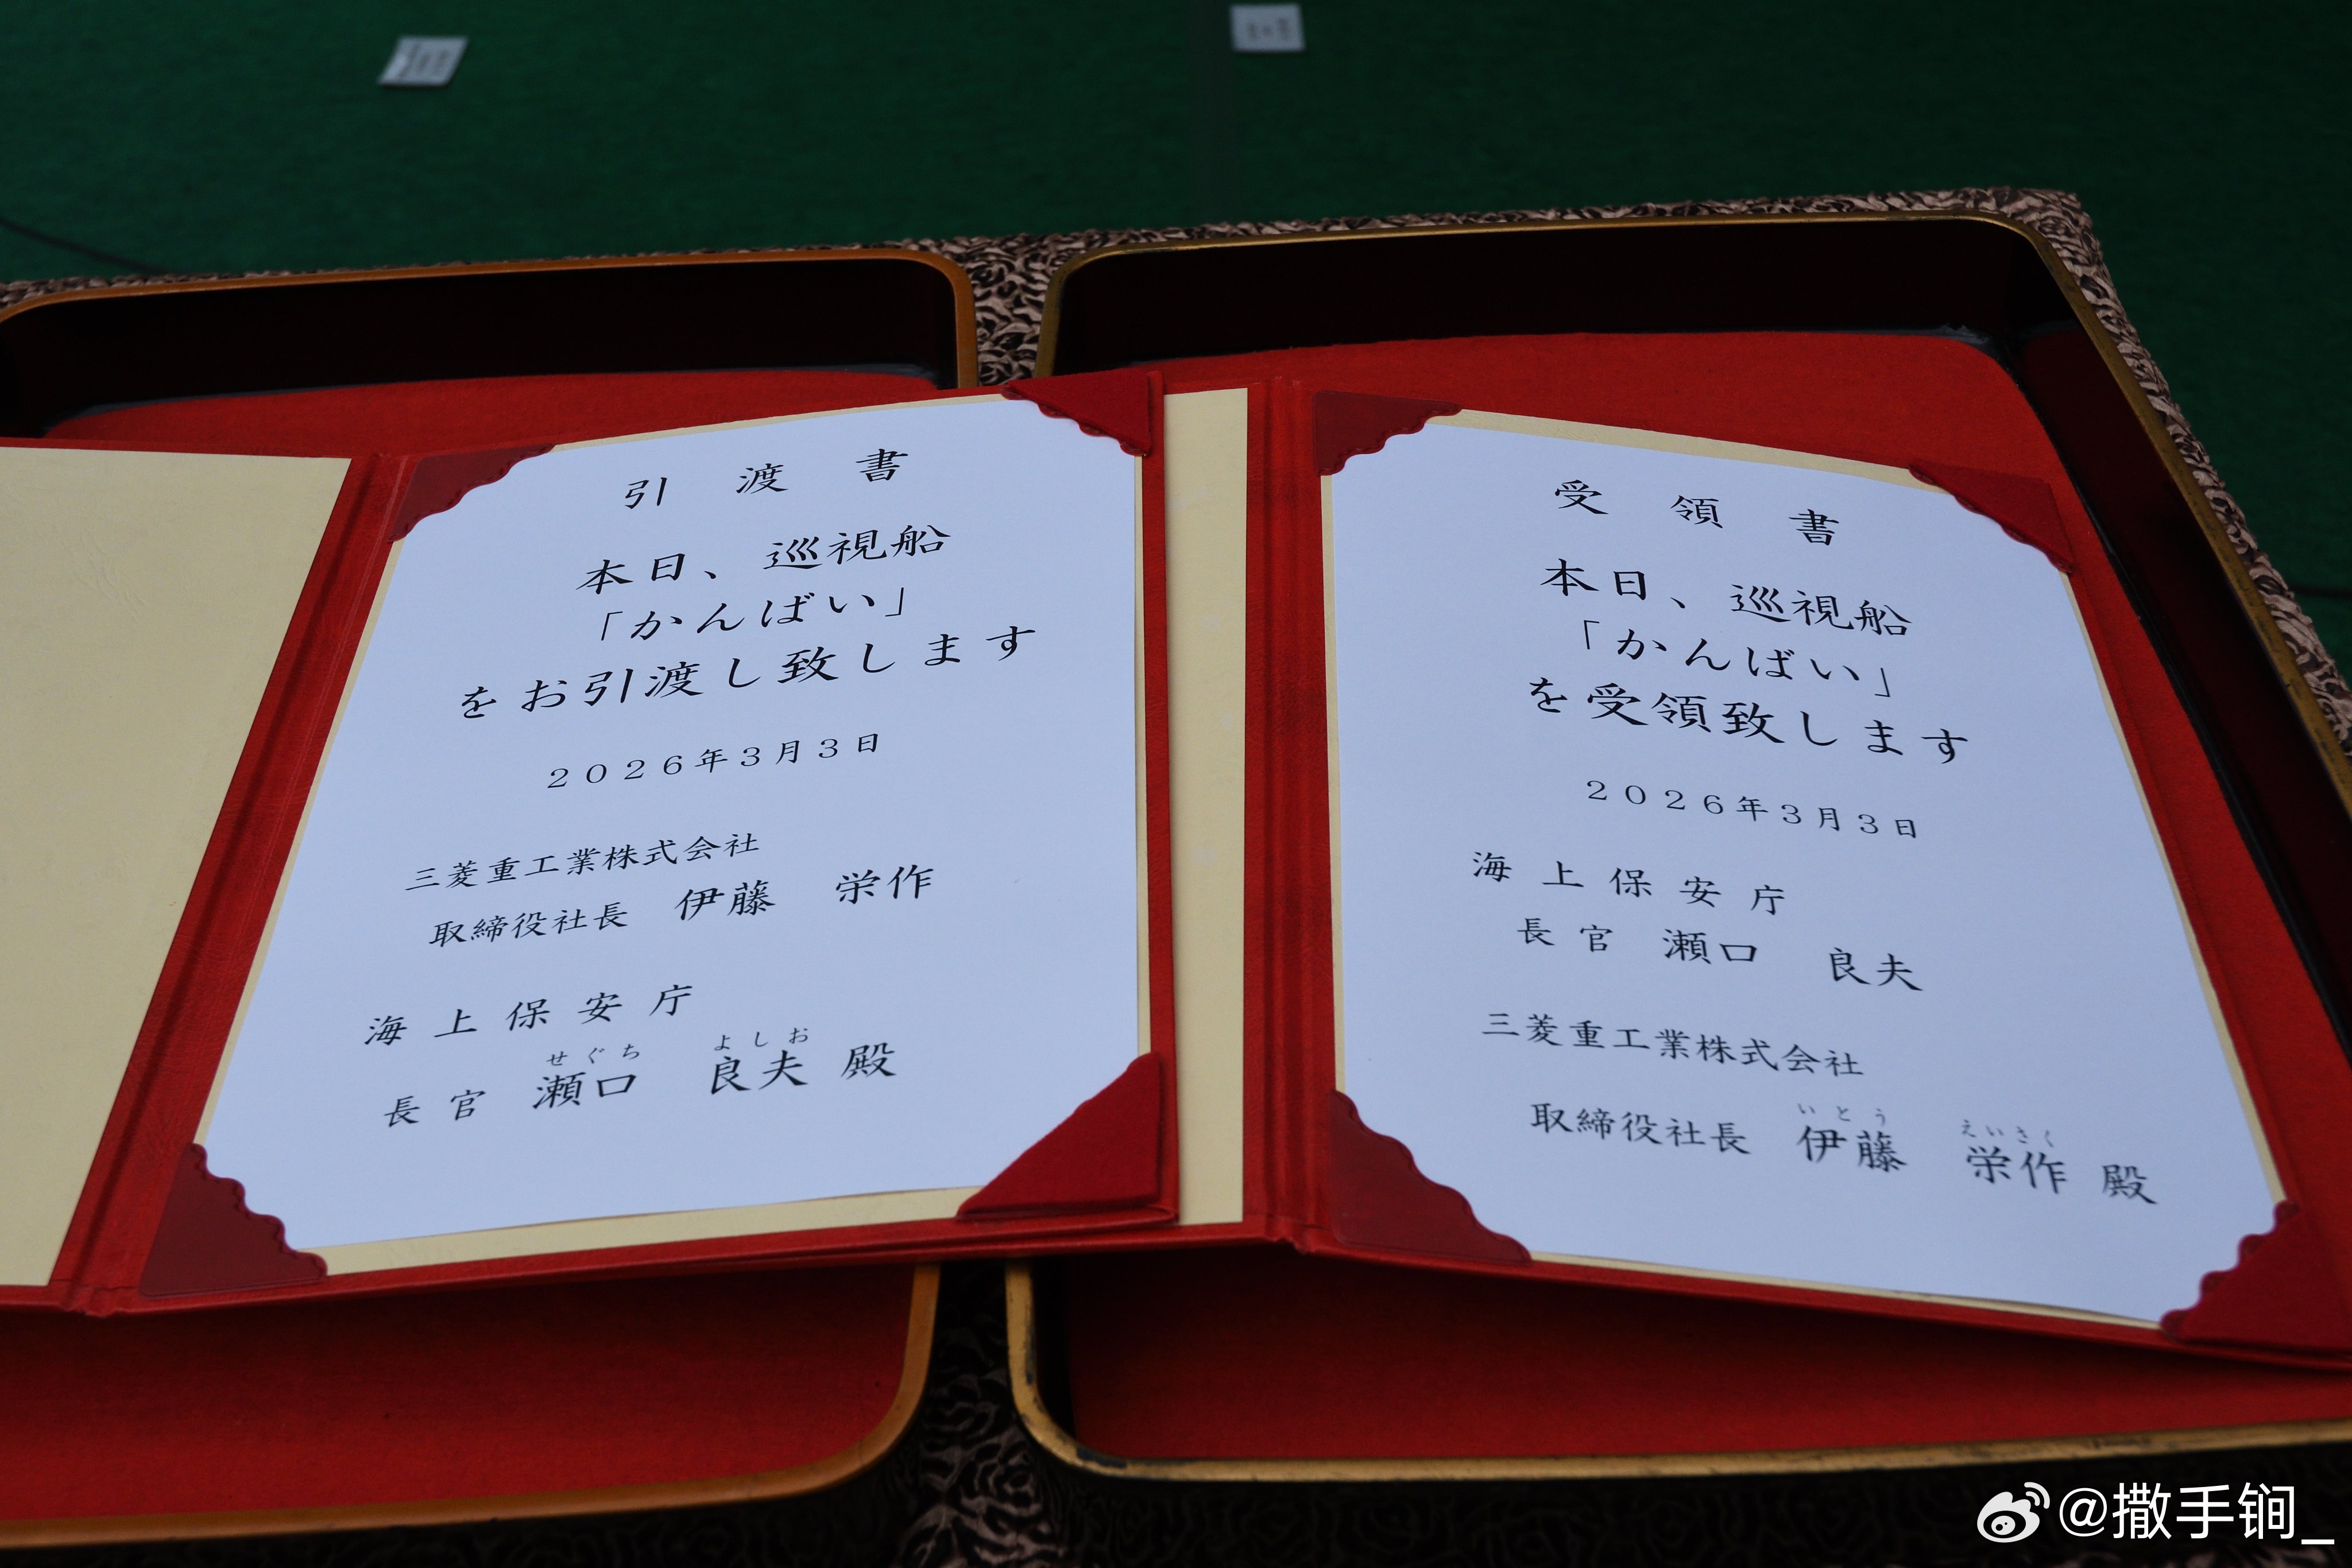 引渡書
本日、巡視船
「かんばい」
をお引渡し致します
2026年3月3日
三菱重工業株式会社
取締役社長 伊藤 栄作
海上保安庁
せぐち よしお
長官 瀬口 良夫 殿
受領書
本日、巡視船
「かんばい」
を受領致します
2026年3月3日
海上保安庁
長官 瀬口 良夫
三菱重工業株式会社
いとう えいさく
取締役社長 伊藤 栄作 殿
@撒手锏_